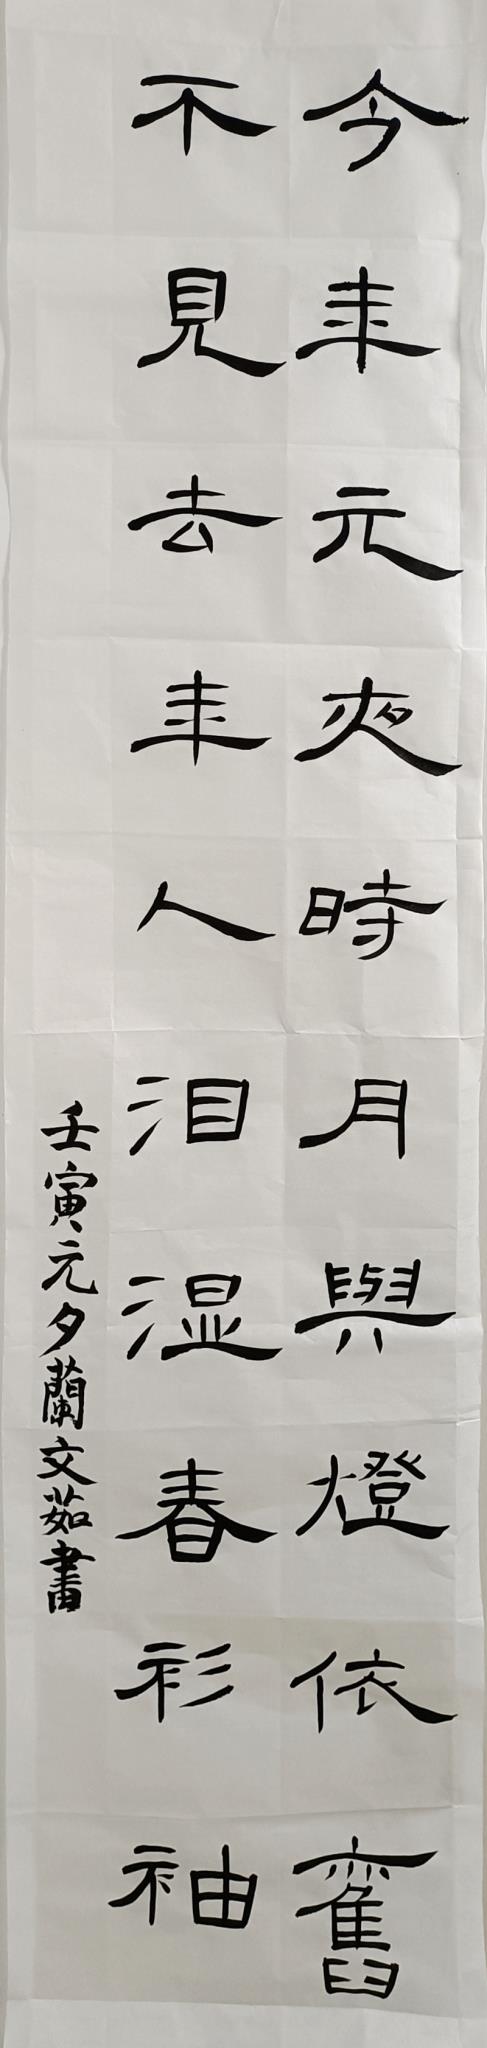 今年元夜時月與燈依舊
不見去年人泪湿春衫袖
壬寅元夕蘭文茹書